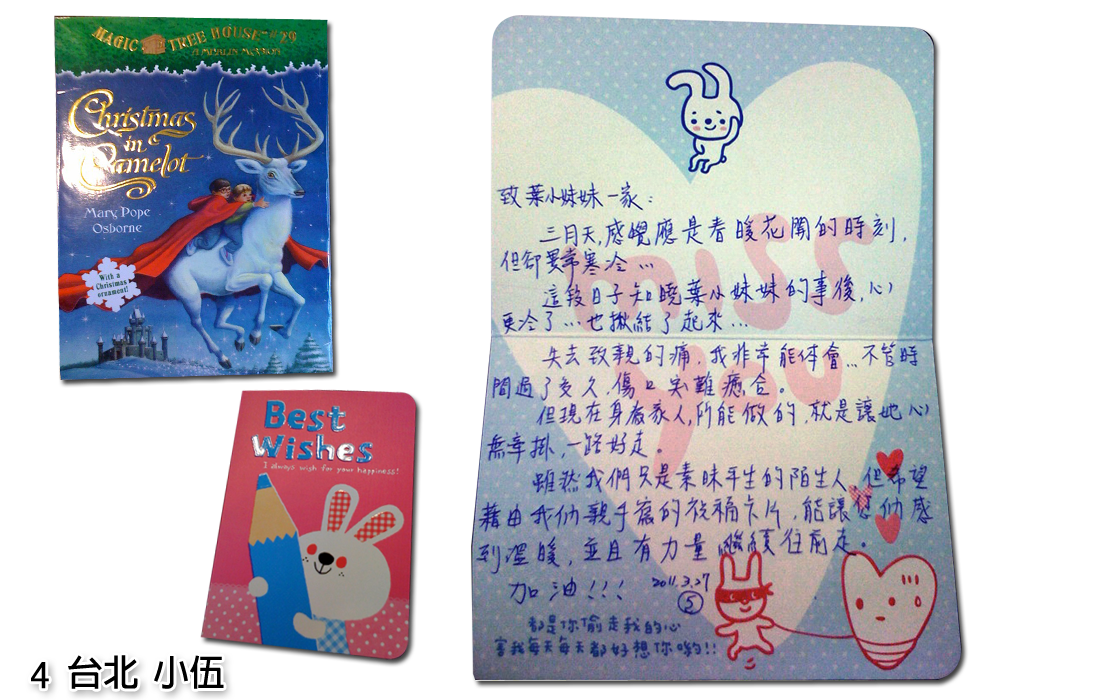 MAGIC TREE HOUSE #29
A MERLIN MISSION
Christmas
in
Camelot
Mary Pope
Osborne
With a
Christmas
ornament!
Best
Wishes
I always wish for your happiness!
4 台北 小伍
miss
you
致葉小妹妹一家：
三月天,感覺應是春暖花開的時刻,
但卻異常寒冷...
這段日子知曉葉小妹妹的事後,心
更冷了...也揪結了起來...
失去致親的痛,我非常能体會...不管時
間過了多久,傷口哭難癒合。
但現在身為家人,所能做的,就是讓她心
無牽掛,一路好走。
雖然我們只是素昧平生的陌生人,但希望
藉由我们親手寫的祝福卡片,能讓您们感
到溫暖,並且有力量繼續往前走。
加油!!!
2011.3.27
⑤
都是你偷走我的心
害我每天每天都好想你喲!!